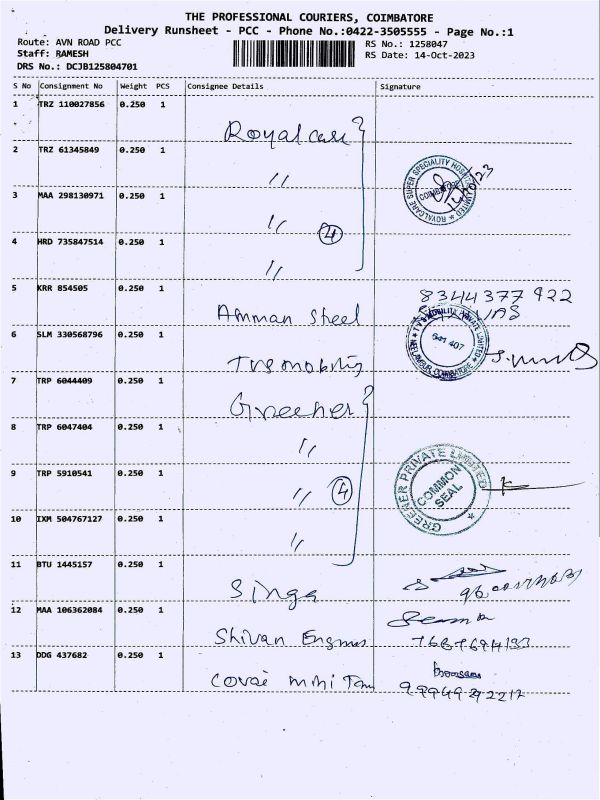 THE PROFESSIONAL COURIERS, COIMBATORE
Delivery Runsheet - PCC - Phone No.:0422-3505555 - Page No.:1
Route: AVN ROAD PCC
RS No.: 1258047
Staff: RAMESH
RS Date: 14-Oct-2023
DRS No.: DCJB125804701
S No Consignment No Weight PCS Consignee Details Signature
1 TRZ 110027856 0.250 1 Royal care
2 TRZ 61345849 0.250 1 〃
ROYALCARE SUPER SPECIALITY HOSPITAL LIMITED COIMBATORE
14/10/23
3 MAA 298130971 0.250 1 〃
4
4 HRD 735847514 0.250 1 〃
5 KRR 854505 0.250 1 Amman Steel 8344377922
6 SLM 330568796 0.250 1 TVS mobility
TVS MOBILITY PRIVATE LIMITED NEELAMBUR, COIMBATORE 641 407
7 TRP 6044409 0.250 1 Greener
8 TRP 6047404 0.250 1 〃
9 TRP 5910541 0.250 1 〃
4
GREENER PRIVATE LIMITED COMMON SEAL
10 IXM 504767127 0.250 1 〃
11 BTU 1445157 0.250 1 Singa
12 MAA 106362084 0.250 1 Shivan Engines
13 DDG 437682 0.250 1 Covai mini